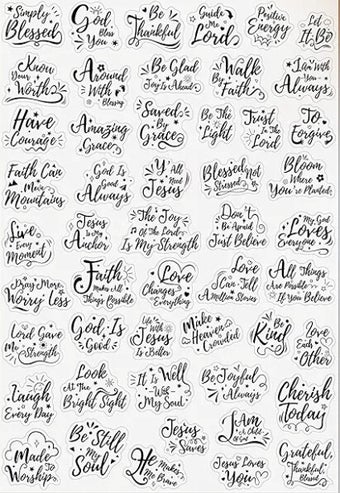 Simply
Blessed
God
Bless
You
Be
Thankful
Guide
Me
Lord
Positive
Energy
Let
It Be
Know
Your
Worth
Around
With
Blessing
Be Glad
Joy Is Ahead
Walk
By
Faith
I Am With
You
Always
Have
Courage
Amazing
Grace
Saved
By
Grace
Be The
Light
Trust
In The
Lord
To
Forgive
Faith Can
Move
Mountains
God Is
Good
Always
Y'All
Need
Jesus
Blessed not
Stressed
Bloom
Where
You're Planted
Live
Every
Moment
Jesus
Is My
Anchor
The Joy
Of The Lord
Is My Strength
Don't
Be Afraid
Just Believe
My God
Loves
Everyone
Pray More
Worry Less
Faith
Makes All
Things Possible
Love
Changes
Everything
Love
Can Tell
A million Stories
All Things
Are Possible
If You Believe
Lord Gave
Me
Strength
God Is
Good
Life
With
Jesus
Is Better
Make
Heaven
Crowded
Be
Kind
Love
Each
Other
Laugh
Every Day
Look
At The
Bright Sight
It Is Well
With
My Soul
Be Joyful
Always
Cherish
Today
Made
To
Worship
Be Still
My
Soul
He
Makes
Me Brave
Jesus
Saves
I Am
A Child
Of God
Jesus Loves
You
Grateful,
Thankful,
Blessed